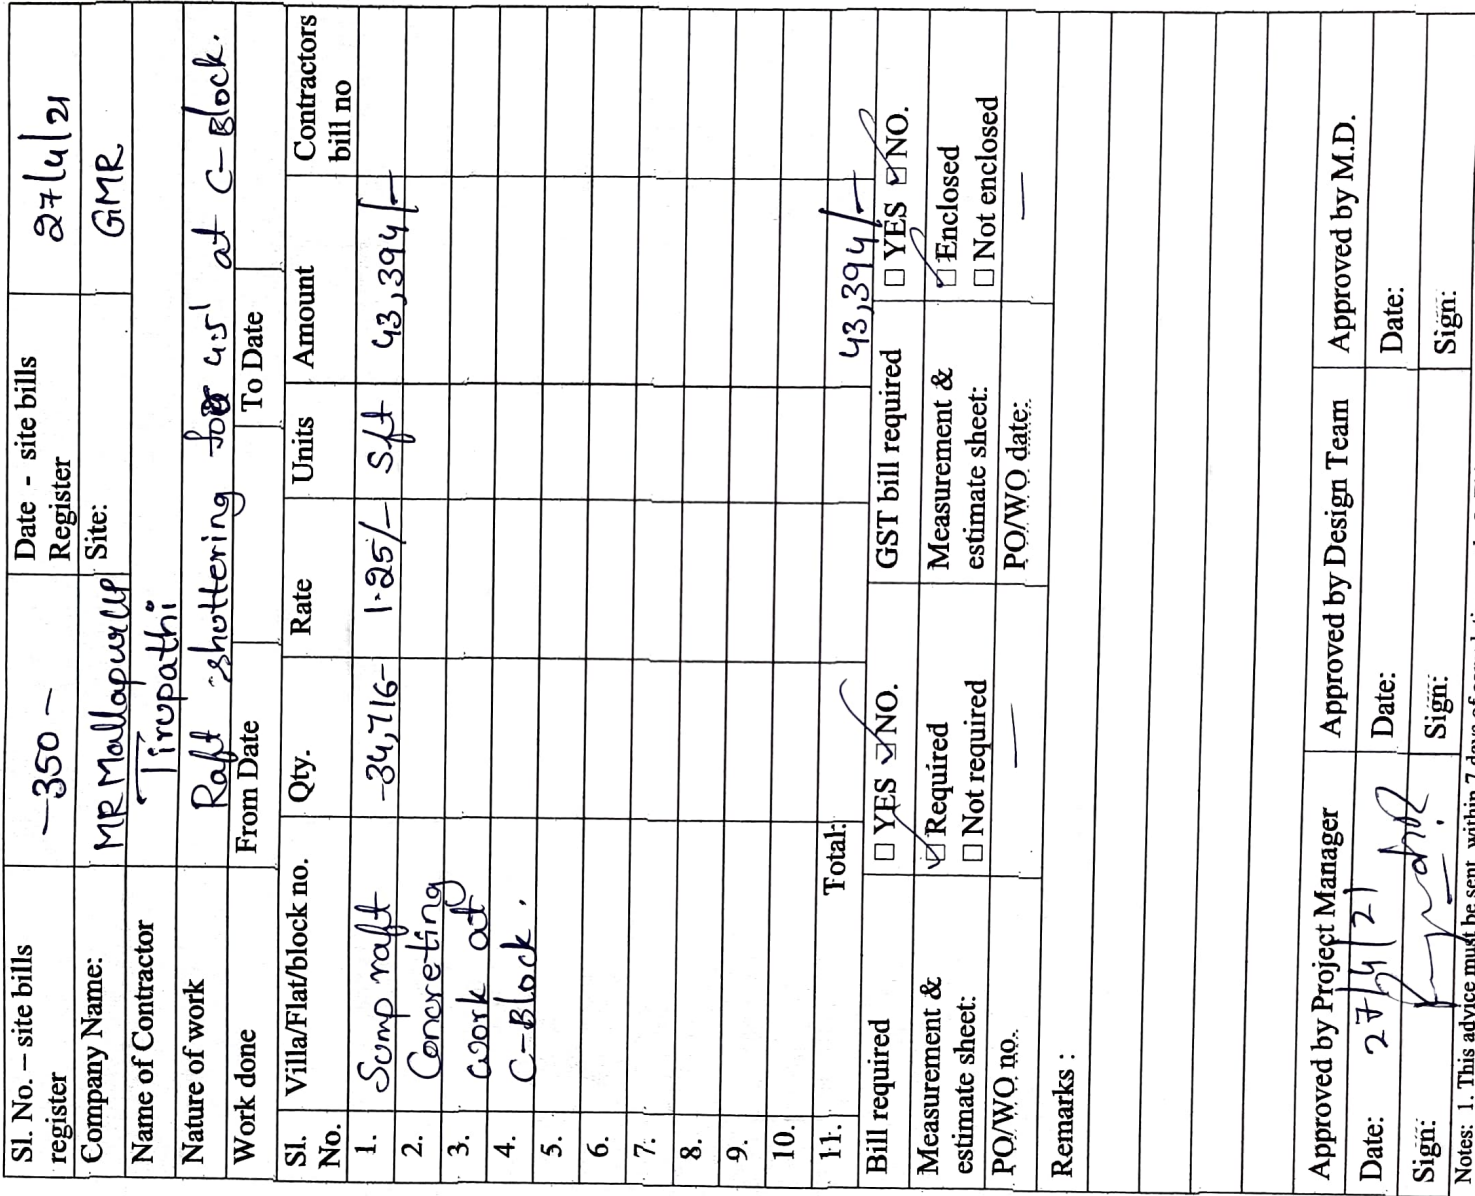 Sl. No. – site bills register -350 - Date - site bills Register 27/4/21
Company Name: MR Mallapur LLP Site: GMR
Name of Contractor Tirupathi
Nature of work Raft shuttering for 45' at C-Block.
Work done From Date To Date
Sl. No. Villa/Flat/block no. Qty. Rate Units Amount Contractors bill no
1. Sump raft 34,716- 1.25/- Sft 43,394/-
2. Concreting
3. work at
4. C-Block.
5.
6.
7.
8.
9.
10.
11. Total: 43,394/-
Bill required □ YES ☑ NO. GST bill required □ YES ☑ NO.
Measurement & estimate sheet: ☑ Required □ Not required Measurement & estimate sheet: ☑ Enclosed □ Not enclosed
PO/WO no. — PO/WO date: —
Remarks :
Approved by Project Manager Approved by Design Team Approved by M.D.
Date: 27/4/21 Date: Date:
Sign: Sign: Sign:
Notes: 1. This advice must be sent within 7 days of